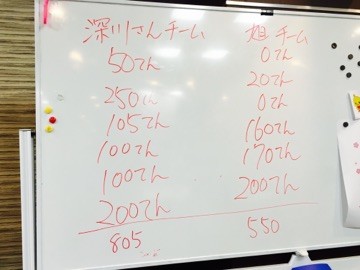 深川さんチーム 担チーム
50てん 0てん
250てん 20てん
105てん 0てん
100てん 160てん
100てん 170てん
200てん 200てん
805 550